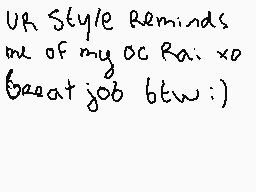 UR Style Reminds
me of my oc Rai xo
Great job btw :)